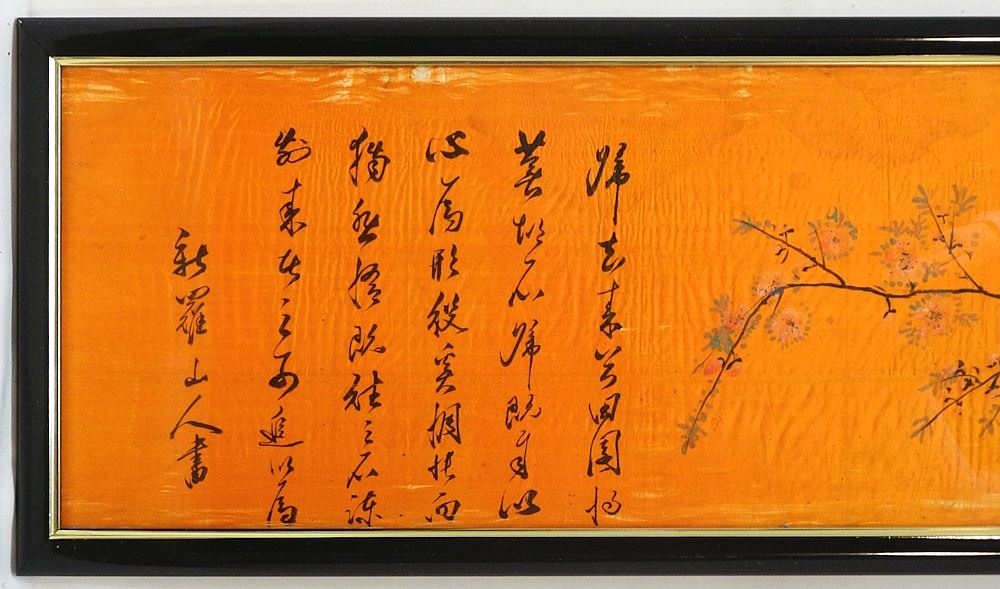 歸去來兮田園將
蕪胡不歸既自以
心為形役奚惆悵而
獨悲悟既往之不諫
知來者之可追以為
新羅山人書